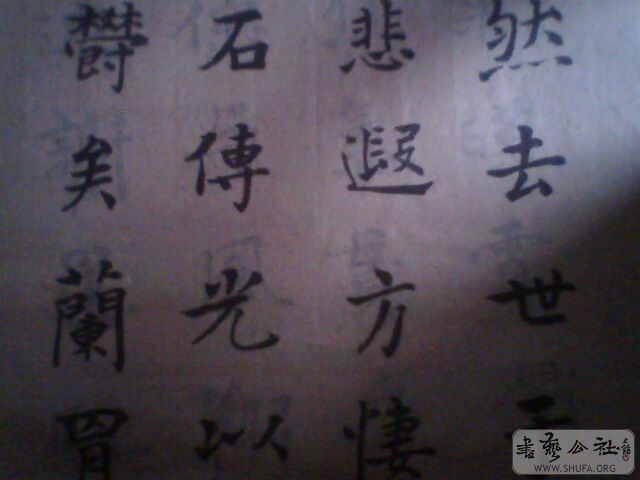 然去世
悲遐方悽
石傳光以
鬱矣蘭胄
書藝公社
WWW.SHUFA.ORG